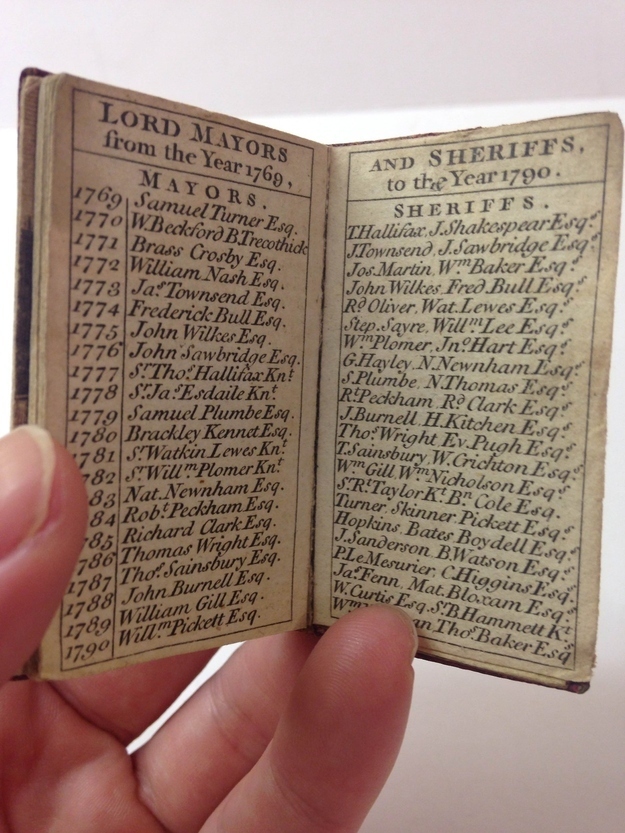 LORD MAYORS
from the Year 1769,
MAYORS.
1769 Samuel Turner Esq.
1770 W.Beckford B.Trecothick
1771 Brass Crosby Esq.
1772 William Nash Esq.
1773 Jas. Townsend Esq.
1774 Frederick Bull Esq.
1775 John Wilkes Esq.
1776 John Sawbridge Esq.
1777 Sr. Thos. Hallifax Knt.
1778 Sr. Jas. Esdaile Knt.
1779 Samuel Plumbe Esq.
1780 Brackley Kennet Esq.
1781 Sr. Watkin Lewes Knt.
1782 Sr. Willm. Plomer Knt.
83 Nat. Newnham Esq.
84 Robt. Peckham Esq.
85 Richard Clark Esq.
1786 Thomas Wright Esq.
1787 Thos. Sainsbury Esq.
1788 John Burnell Esq.
1789 William Gill Esq.
1790 Willm. Pickett Esq.
AND SHERIFFS,
to the Year 1790.
SHERIFFS.
T.Hallifax, J.Shakespear Esqrs.
J.Townsend, J.Sawbridge Esqrs.
Jos. Martin, Wm. Baker Esqrs.
John Wilkes, Fred. Bull Esqrs.
Rd. Oliver, Wat. Lewes Esqrs.
Step. Sayre, Willm. Lee Esqrs.
Wm. Plomer, Jno. Hart Esqrs.
G.Hayley, N.Newnham Esqrs.
S.Plumbe, N.Thomas Esqrs.
Rt. Peckham, Rd. Clark Esqrs.
J.Burnell, H.Kitchen Esqrs.
Thos. Wright, Ev. Pugh Esqrs.
T.Sainsbury, W.Crichton Esqrs.
Wm. Gill, Wm. Nicholson Esqrs.
Sr. Rt. Taylor Kt. Bn. Cole Esq.
Turner, Skinner, Pickett Esqrs.
Hopkins, Bates, Boydell Esqrs.
J.Sanderson, B.Watson Esqrs.
P.Le Mesurier, C.Higgins Esqrs.
Jas. Fenn, Mat. Bloxam Esqrs.
W.Curtis Esq. Sr. B.Hammett Kt.
Wm. an Thos. Baker Esq